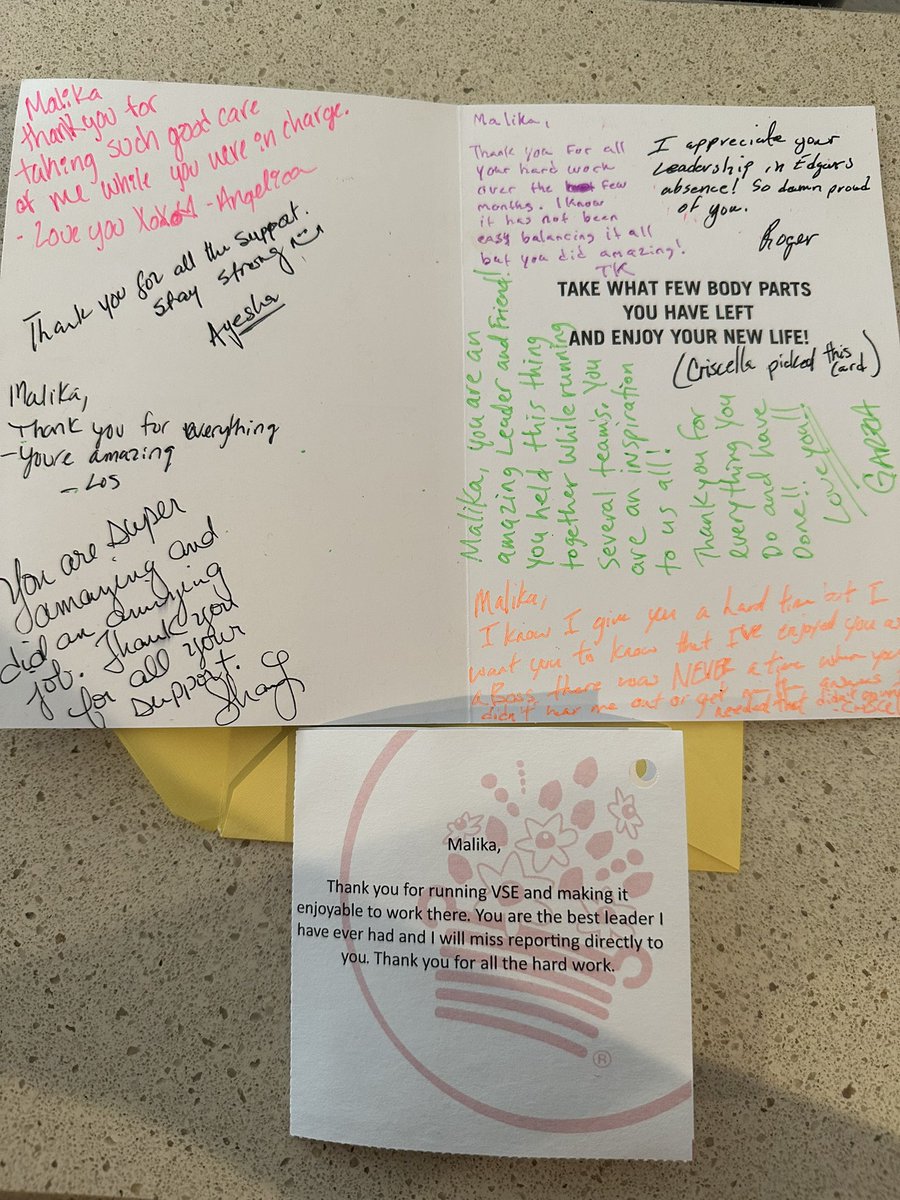 Malika
thank you for
taking such good care
of me while you were in charge.
- Love you - Angelica
Thank you for all the support.
Stay strong
Ayesha
Malika,
Thank you for everything
- You're amazing
- Los
You are super
amazing and
did an amazing
job. Thank you
for all your
support.
Malika,
Thank you for all
your hard work
over the few
months. I know
it has not been
easy balancing it all
but you did amazing!
TK
I appreciate your
Leadership in Edgar's
absence! So damn proud
of you.
Roger
TAKE WHAT FEW BODY PARTS
YOU HAVE LEFT
AND ENJOY YOUR NEW LIFE!
(Criscella picked this
card)
Malika, you are an
amazing Leader and Friend!
you held this thing
together while running
several team's. You
are an inspiration
to us all!
Thank you for
everything you
Do and have
Done!!
Love you!!
Malika,
I know I give you a hard time but I
want you to know that I've enjoyed you as
a Boss there was NEVER a time when you
didn't hear me out or get me the answers I
needed that
Malika,
Thank you for running VSE and making it
enjoyable to work there. You are the best leader I
have ever had and I will miss reporting directly to
you. Thank you for all the hard work.
®